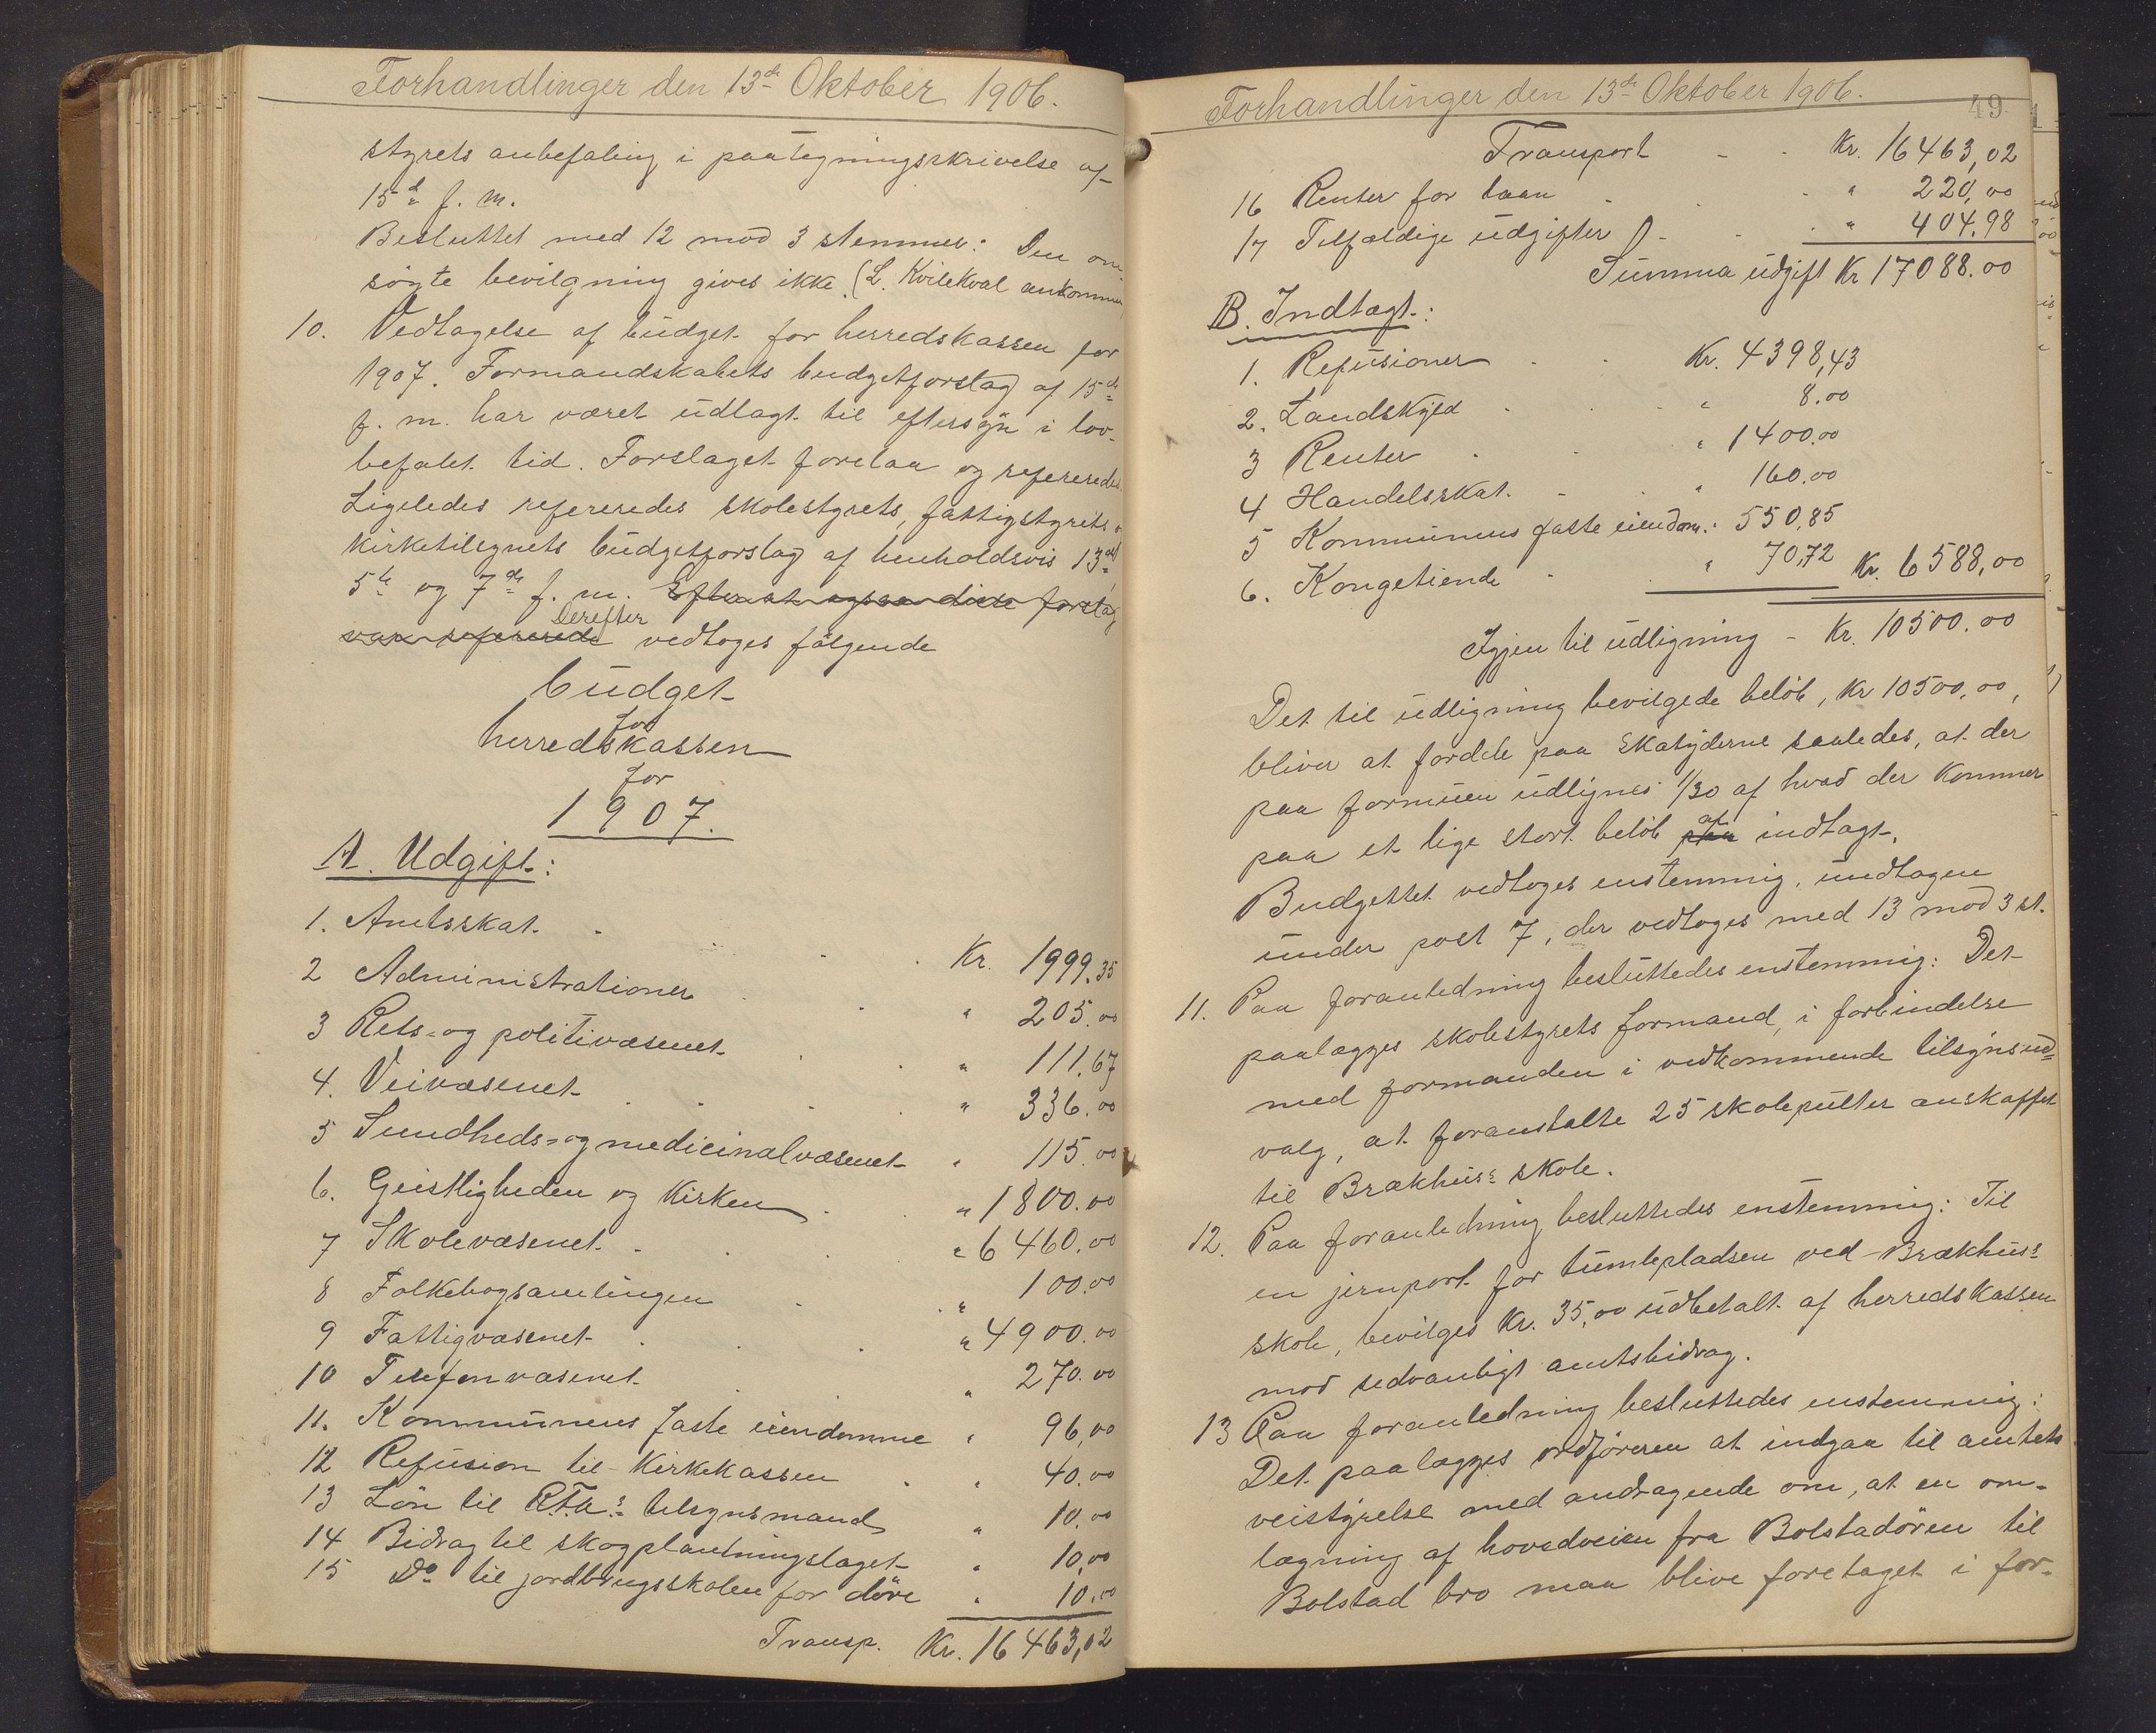 Forhandlinger den 13de Oktober 1906.
styrets anbefaling i paategningsskrivelse af
15de f. m.
Besluttet med 12 mod 3 stemmer: Den om
søgte bevilgning gives ikke. (L. Kvilekval ankommer
10. Vedtagelse af budget for herredskassen for
1907. Formandskabets budgetforslag af 15de
f. m. har været udlagt til eftersyn i lov-
befalet tid. Forslaget forelaa og refereredes.
Ligeledes refereredes skolestyrets, fattigstyrets o
kirketilsynets budgetforslag af henholdsvis 13de,
5te og 7de f. m. Efter at ogsaa disse forslag
var refererede Derefter vedtoges følgende
budget
for
herredskassen
for
1907.
A. Udgift:
1. Amtsskat. Kr. 1999.35
2 Administrationen " 205.00
3 Rets- og politivæsenet " 111.67
4. Veivæsenet " 336.00
5 Sundheds- og medicinalvæsenet " 115.00
6. Geistligheden og Kirken " 1800.00
7 Skolevæsenet " 6460.00
8 Folkebogsamlingen " 100.00
9 Fattigvæsenet " 4900.00
10 Telefonvæsenet " 270.00
11. Kommunens faste eiendomme " 96,00
12 Refusion til Kirkekassen " 40.00
13 Løn til R.F.A.s tilsynsmand " 10.00
14 Bidrag til skogplantningslaget " 10,00
15 Do til jordbrugsskolen for døve " 10.00
Transp. Kr. 16463,02
Forhandlinger den 13de Oktober 1906.
49
Transport - - Kr. 16463,02
16 Renter for laan " 220,00
17 Tilfældige udgifter " 404.98
Summa udgift Kr 17088.00
B. Indtægt:
1. Refusioner Kr. 4398,43
2. Landskyld " 8.00
3 Renter " 1400.00
4 Handelsskat. " 160.00
5 Kommunens faste eiendom.: 550,85
6. Kongetiende " 70,72 Kr. 6588,00
Igjen til udligning - Kr. 10500.00
Det til udligning bevilgede beløb, Kr 10500,00,
bliver at fordele paa skatyderne saaledes, at der
paa formuen udlignes 1/30 af hvad der kommer
paa et lige stort beløb paa af indtægt.
Budgettet vedtoges enstemmig, undtagen
under post 7, der vedtoges med 13 mod 3 st.
11. Paa foranledning besluttedes enstemmig: Det
paalægges skolestyrets formand, i forbindelse
med formanden i vedkommende tilsynsud=
valg, at foranstalte 25 skolepulter anskaffet
til Brækhus's skole.
12. Paa foranledning besluttedes enstemmig: Til
en jernport for tumlepladsen ved Brækhus's
skole, bevilges Kr. 35,00 udbetalt af herredskassen
mod sedvanligt amtsbidrag.
13 Paa foranledning besluttedes enstemmig:
Det paalægges ordføreren at indgaa til amtets
veistyrelse med andragende om, at en om-
lægning af hovedveien fra Bolstadøren til
Bolstad bro maa blive foretaget i for-